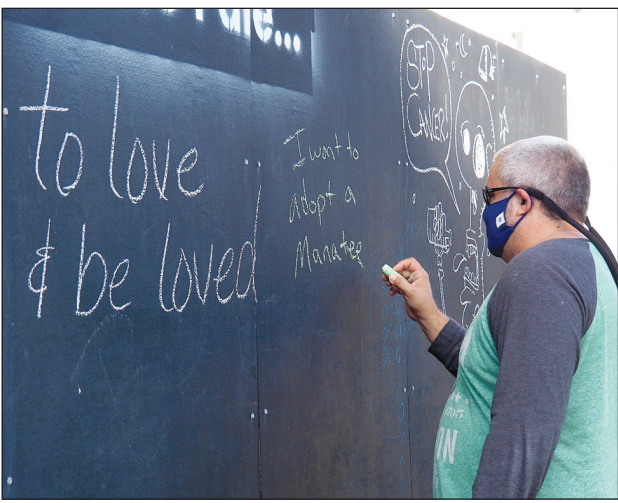 to love
& be loved
I want to
adopt a
Manatee
STOP
CANCER